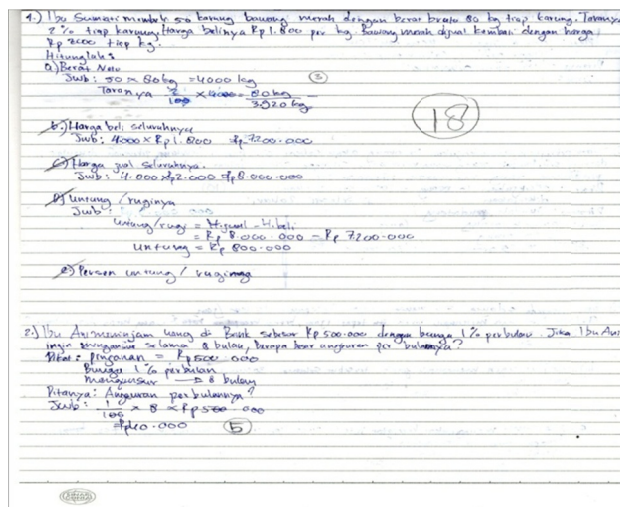 1.) Ibu Sumiati membeli 50 karung bawang merah dengan berat bruto 80 kg tiap karung. Taranya
2% tiap karung. Harga belinya Rp 1.800 per kg. Bawang merah dijual kembali dengan harga
Rp 2000 tiap kg.
Hitunglah:
a) Berat Neto
Jwb: 50 × 80 kg = 4000 kg
3
Taranya 2/100 × 4000 = 80 kg
3.920 kg
18
b.) Harga beli seluruhnya
Jwb: 4.000 × Rp 1.800 Rp 7.200.000
c) Harga jual seluruhnya.
Jwb: 4.000 × Rp 2.000 = Rp 8.000.000
d) untung / ruginya
Jwb:
untung/rugi = H.jual - H.beli
= Rp 8.000.000 - Rp 7.200.000
untung = Rp 800.000
e) Persen untung / ruginya
2.) Ibu Ani meminjam uang di Bank sebesar Rp 500.000 dengan bunga 1% perbulan. Jika Ibu Ani
ingin mengangsur selama 8 bulan, berapa besar angsuran per bulannya?
Dikat: pinjaman = Rp 500.000
Bunga 1% perbulan
mengansur → 8 bulan
Ditanya: Angsuran perbulannya?
Jwb: 1/100 × 8 × Rp 500.000
= Rp 40.000
5